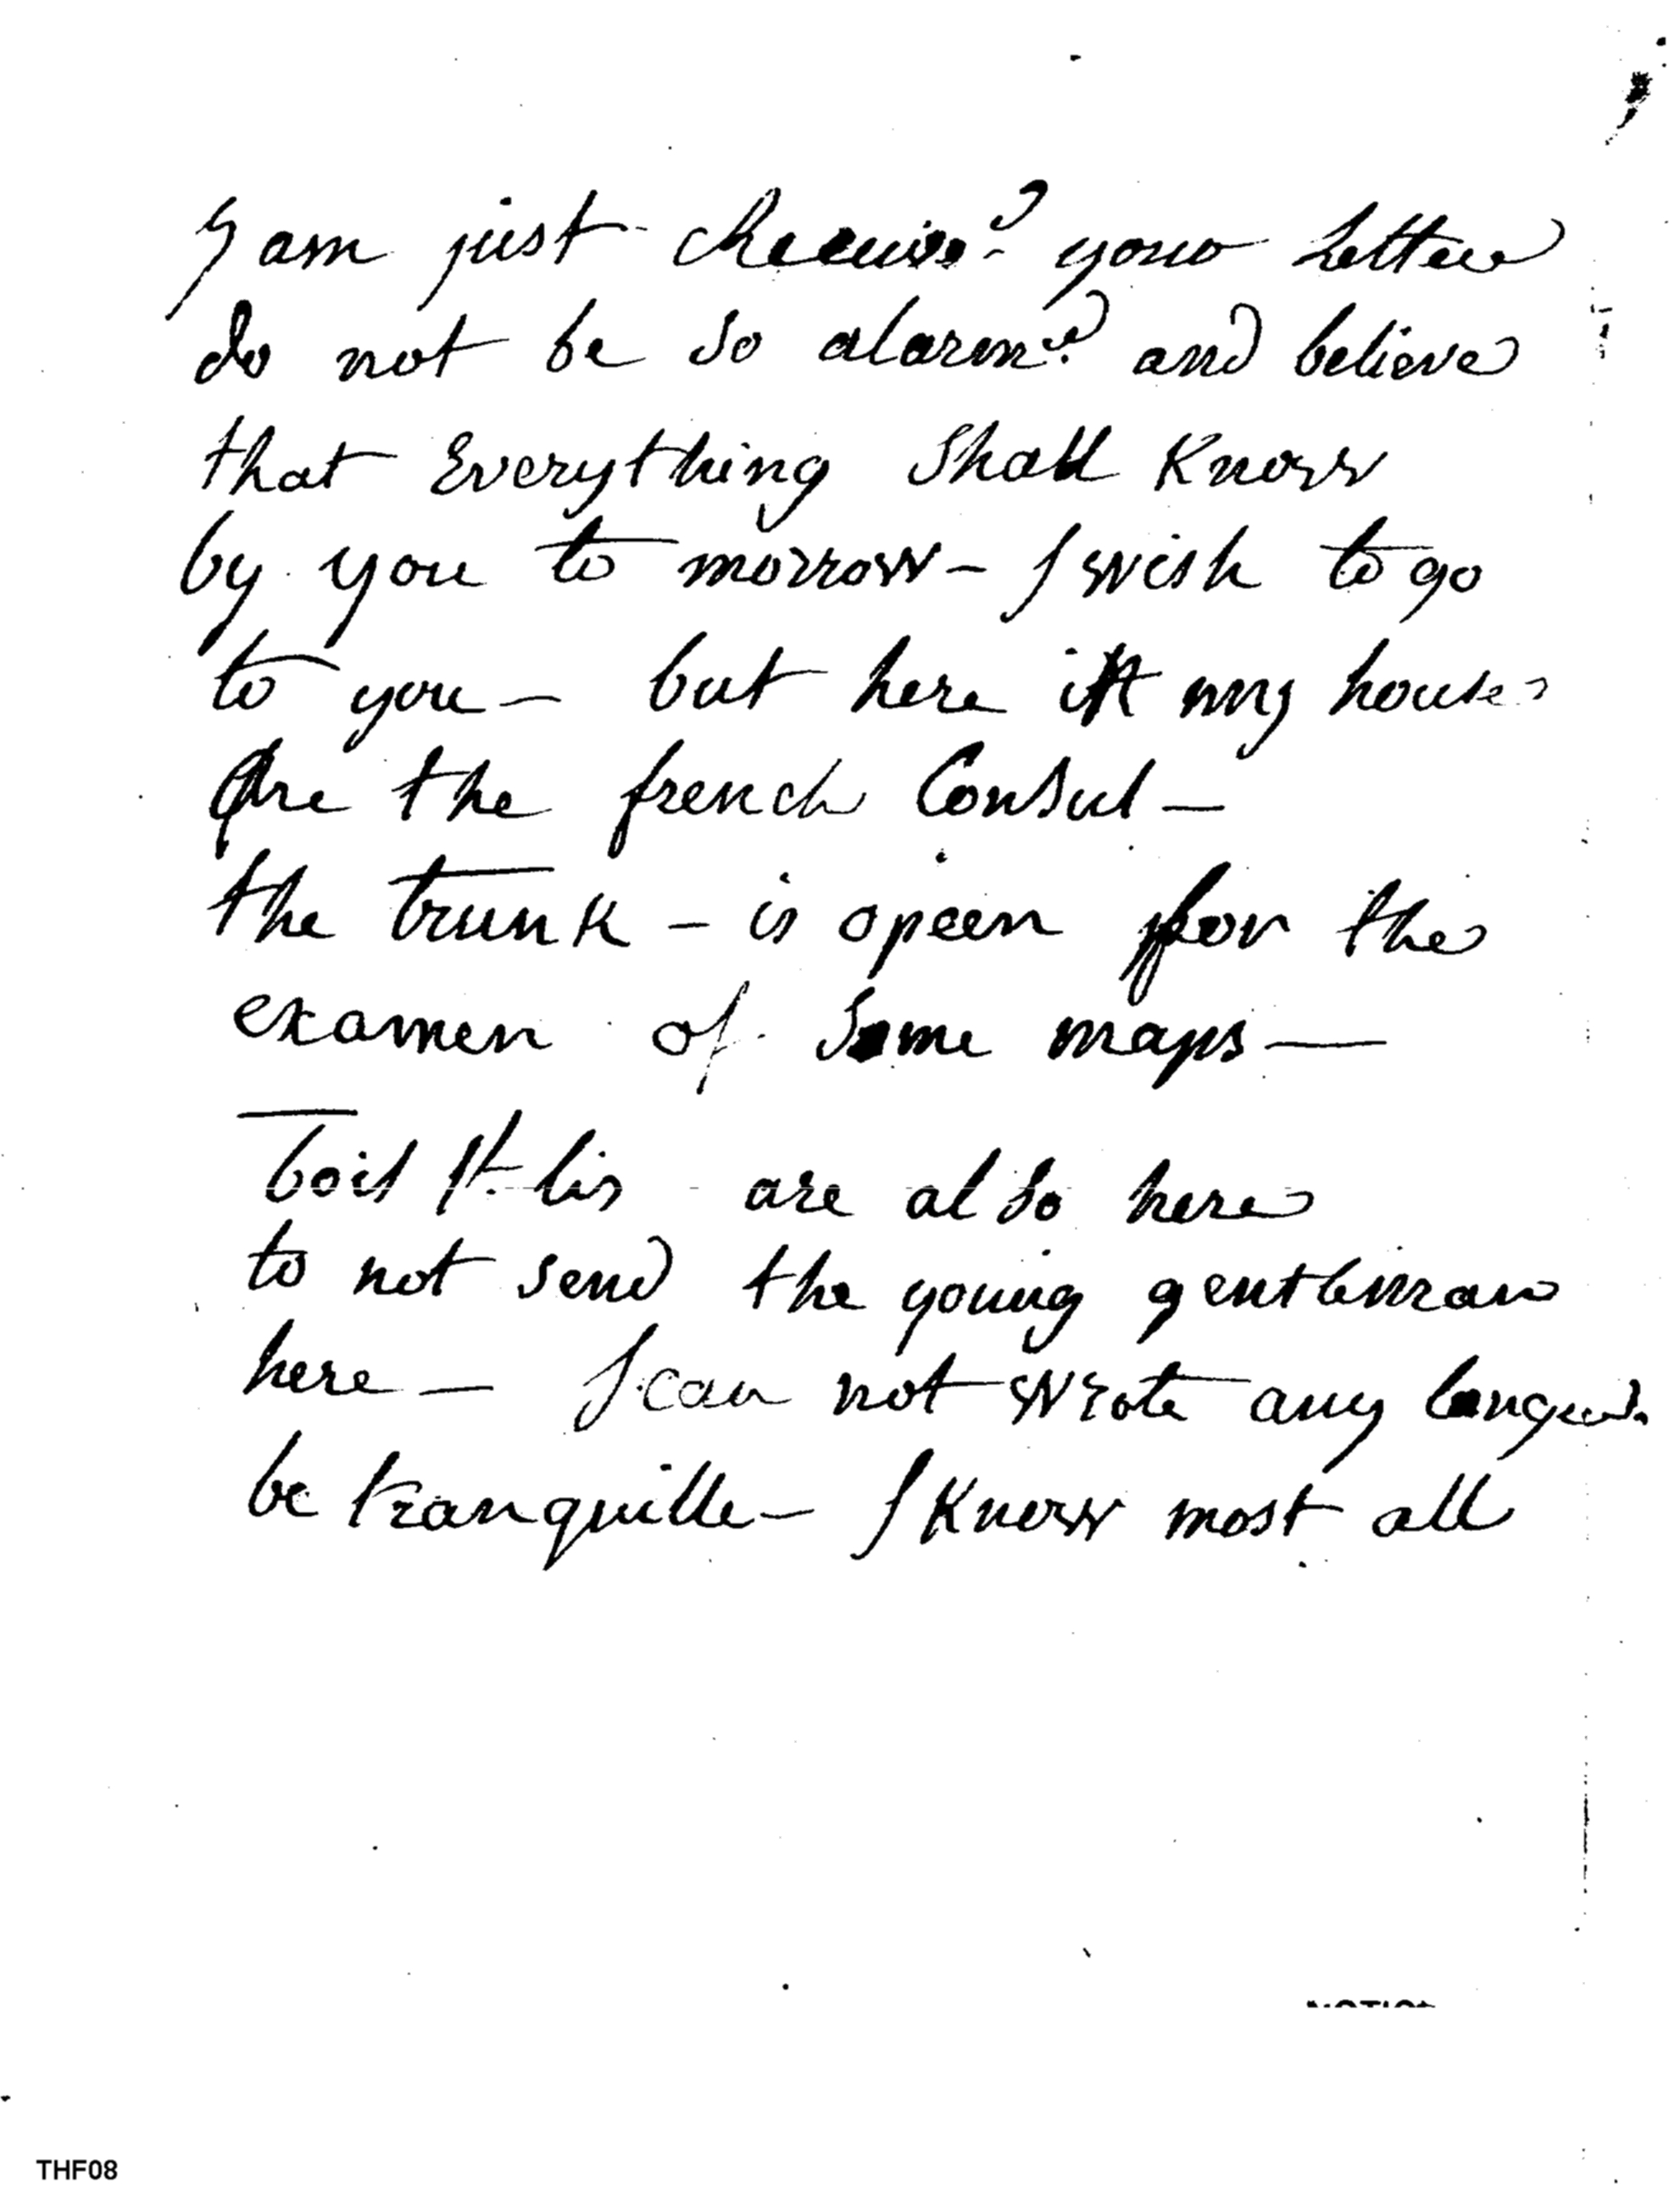 I am just Receiv.d your Letter
do not be so alarm.d and believe
that Everything Shall Know
by you to morrow - I wish to go
to you - but here in my house
Are the french Consul -
the trunk - is opeen for the
examen of Some maps -
are also here
to not send the young gentleman
here - I can not wrote any
be tranquille - I Know most all
THF08